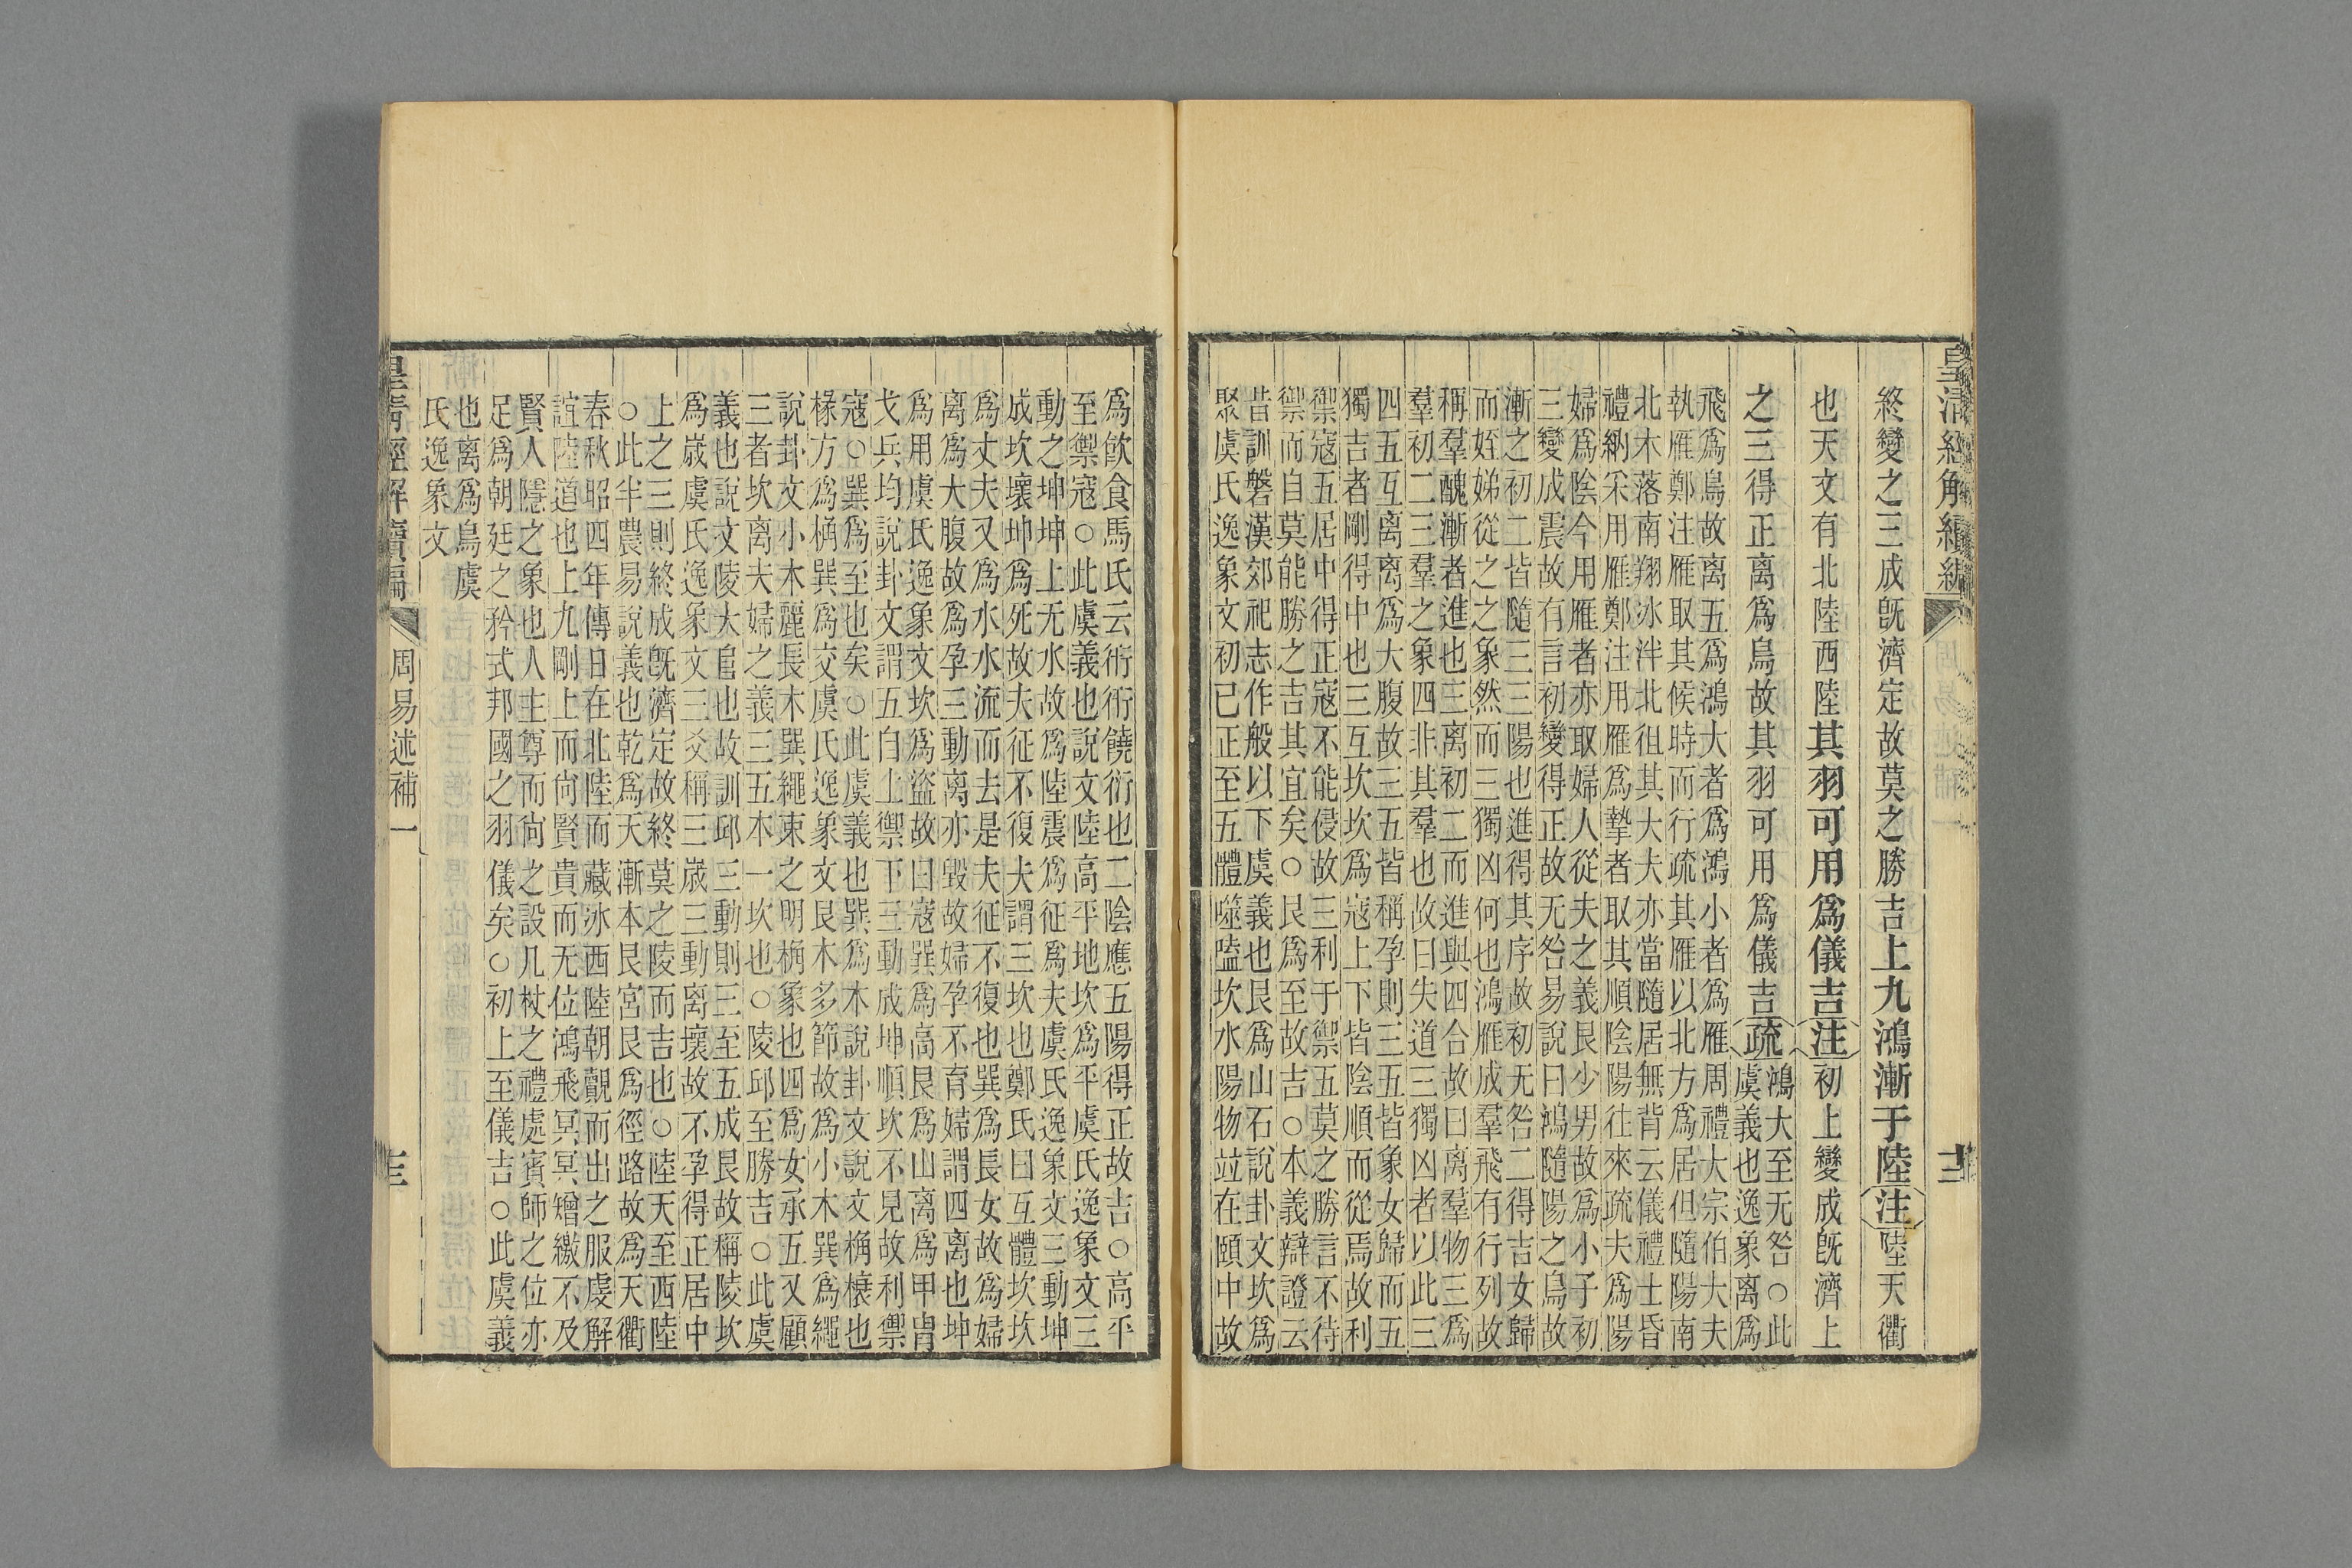 皇清經解續編
終變之三成旣濟定故莫之勝吉上九鴻漸于陸注陸天衢
也天文有北陸西陸其羽可用爲儀吉注初上變成旣濟上
之三得正离爲鳥故其羽可用爲儀吉疏鴻大至无咎○此
虞義也逸象离爲
飛爲鳥故离五爲鴻大者爲鴻小者爲雁周禮大宗伯大夫
執雁鄭注雁取其候時而行疏其雁以北方爲居但隨陽南
北木落南翔冰泮北徂其大夫亦當隨居無背云儀禮士昏
禮納采用雁鄭注用雁爲摯者取其順陰陽往來疏夫爲陽
婦爲陰今用雁者亦取婦人從夫之義艮少男故爲小子初
三變成震故有言初變得正故无咎易說曰鴻隨陽之鳥故
漸之初二皆隨三三陽也進得其序故初无咎二得吉女歸
而姪娣從之之象然而三獨凶何也鴻雁成羣飛有行列故
稱羣醜漸者進也三离初二而進與四合故曰离羣物三爲
羣初二三羣之象四非其羣也故曰失道三獨凶者以此三
四五互离离爲大腹故三五皆稱孕則三五皆象女歸而五
獨吉者剛得中也三互坎坎爲寇上下皆陰順而從焉故利
禦寇五居中得正寇不能侵故三利于禦五莫之勝言不待
禦而自莫能勝之吉其宜矣○艮爲至故吉○本義辯證云
昔訓磐漢郊祀志作般以下虞義也艮爲山石說卦文坎爲
聚虞氏逸象文初已正至五體噬嗑坎水陽物竝在頤中故
爲飮食馬氏云衎衎饒衍也二陰應五陽得正故吉○高平
至禦寇○此虞義也說文陸高平地坎爲平虞氏逸象文三
動之坤坤上无水故爲陸震爲征爲夫虞氏逸象文三動坤
成坎壞坤爲死故夫征不復夫謂三坎也鄭氏曰互體坎坎
爲丈夫又爲水水流而去是夫征不復也巽爲長女故爲婦
离爲大腹故爲孕三動离亦毀故婦孕不育婦謂四离也坤
爲用虞氏逸象文坎爲盜故曰寇巽爲高艮爲山离爲甲冑
戈兵均說卦文謂五白上禦下三動成坤順坎不見故利禦
寇○巽爲至也矣○此虞義也巽爲木說卦文說文桷榱也
椽方爲桷巽爲交虞氏逸象文艮木多節故爲小木巽爲繩
說卦文小木麗長木巽繩束之明桷象也四爲女承五又顧
三者坎离夫婦之義三五本一坎也○陵邱至勝吉○此虞
義也說文陵大𨸏也故訓邱三動則三至五成艮故稱陵坎
爲嵗虞氏逸象文三爻稱三嵗三動离壞故不孕得正居中
上之三則終成旣濟定故終莫之陵而吉也○陸天至西陸
○此半農易說義也乾爲天漸本艮宮艮爲徑路故爲天衢
春秋昭四年傳日在北陸而藏冰西陸朝覿而出之服虔解
誼陸道也上九剛上而尙賢貴而无位鴻飛冥冥矰繳不及
賢人隱之象也人主尊而尙之設几杖之禮處賓師之位亦
足爲朝廷之矜式邦國之羽儀矣○初上至儀吉○此虞義
也离爲鳥虞
氏逸象文
皇清經解續編
周易述補一